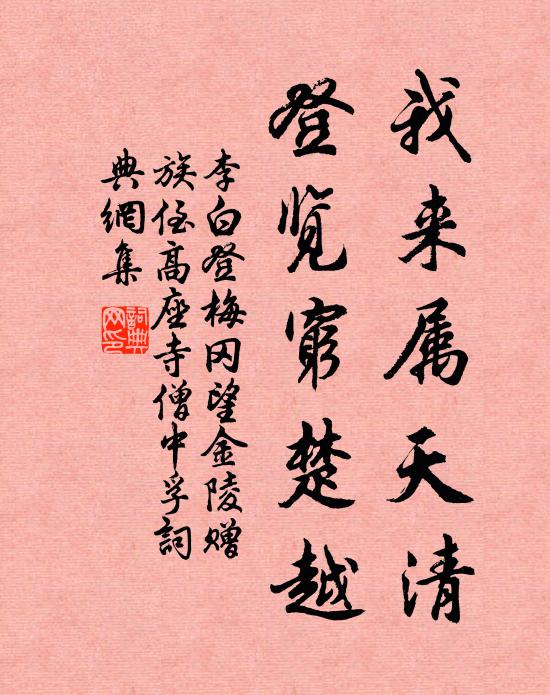 我来属天清
登览窮楚越
李白登梅冈望金陵赠
族侄高座寺僧中孚詞
典網集
詞典
网印